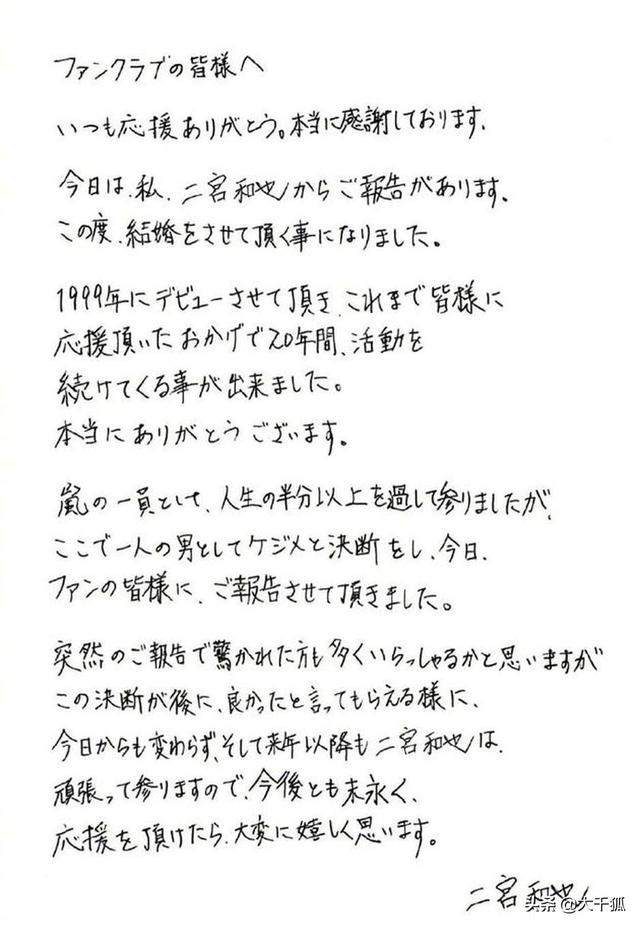 ファンクラブの皆様へ
いつも応援ありがとう。本当に感謝しております。
今日は、私、二宮和也からご報告があります。
この度、結婚をさせて頂く事になりました。
1999年にデビューさせて頂き、これまで皆様に
応援頂いたおかげで20年間、活動を
続けてくる事が出来ました。
本当にありがとうございます。
嵐の一員として、人生の半分以上を過して参りましたが、
ここで一人の男としてケジメと決断をし、今日、
ファンの皆様に、ご報告させて頂きました。
突然のご報告で驚かれた方も多くいらっしゃるかと思いますが
この決断が後に、良かったと言ってもらえる様に、
今日からも変わらず、そして来年以降も二宮和也は、
頑張って参りますので、今後とも末永く、
応援を頂けたら、大変に嬉しく思います。
二宮和也
头条 @大千狐